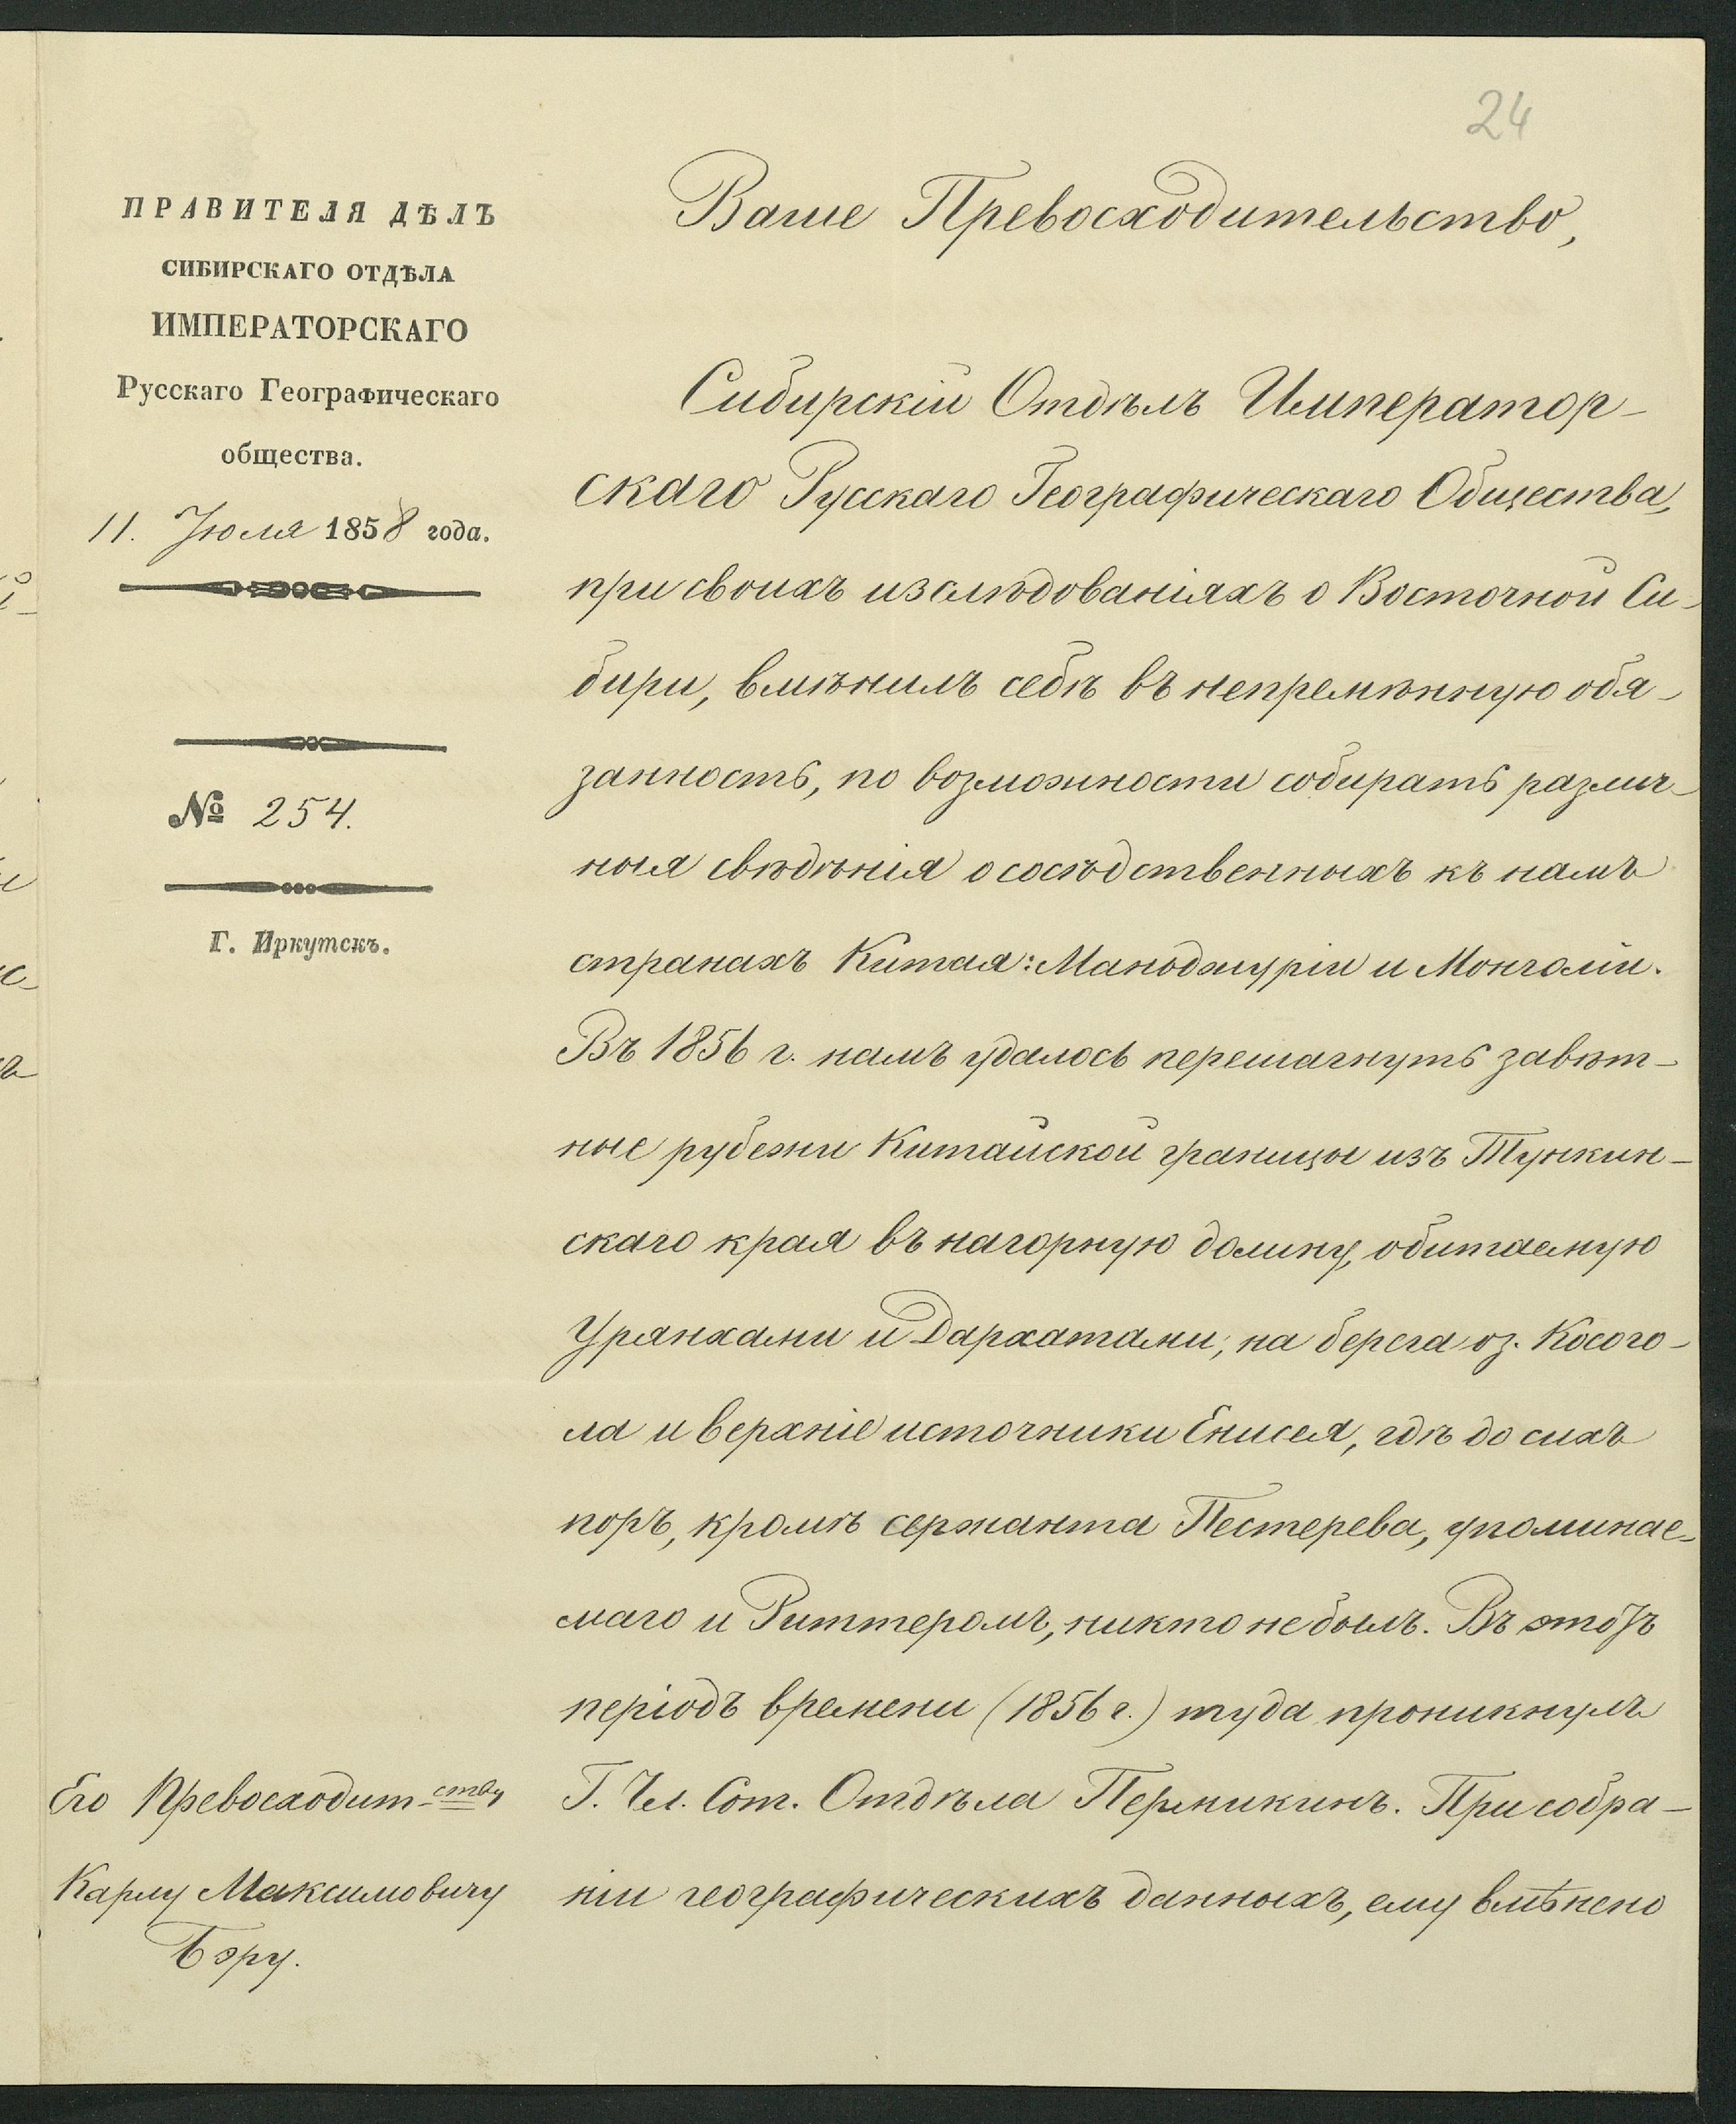 24
ПРАВИТЕЛЯ ДѢЛЪ
СИБИРСКАГО ОТДѢЛА
ИМПЕРАТОРСКАГО
Русскаго Географическаго
общества.
11. Іюля 1858 года.
№ 254.
Г. Иркутскъ.
Ваше Превосходительство,
Сибирскій Отдѣлъ Император-
скаго Русскаго Географическаго Общества,
при своихъ изслѣдованіяхъ о Восточной Си-
бири, вмѣнилъ себѣ въ непремѣнную обя-
занность, по возможности собирать различ-
ныя свѣдѣнія о сосѣдственныхъ къ намъ
странахъ Китая: Маньджуріи и Монголіи.
Въ 1856 г. намъ удалось перешагнуть завѣт-
ные рубежи Китайской границы изъ Тункин-
скаго края въ нагорную долину, обитаемую
Урянхами и Дархатами; на берега оз. Косого-
ла и верхніе источники Енисея, гдѣ до сихъ
поръ, кромѣ сержанта Пестерева, упоминае-
маго и Риттеромъ, никто не былъ. Въ этотъ
періодъ времени (1856 г.) туда проникнулъ
Г. Чл. Сот. Отдѣла Пермикинъ. При собра-
ніи географическихъ данныхъ, ему вмѣнено
Его Превосходит-ству
Карлу Максимовичу
Бэру.